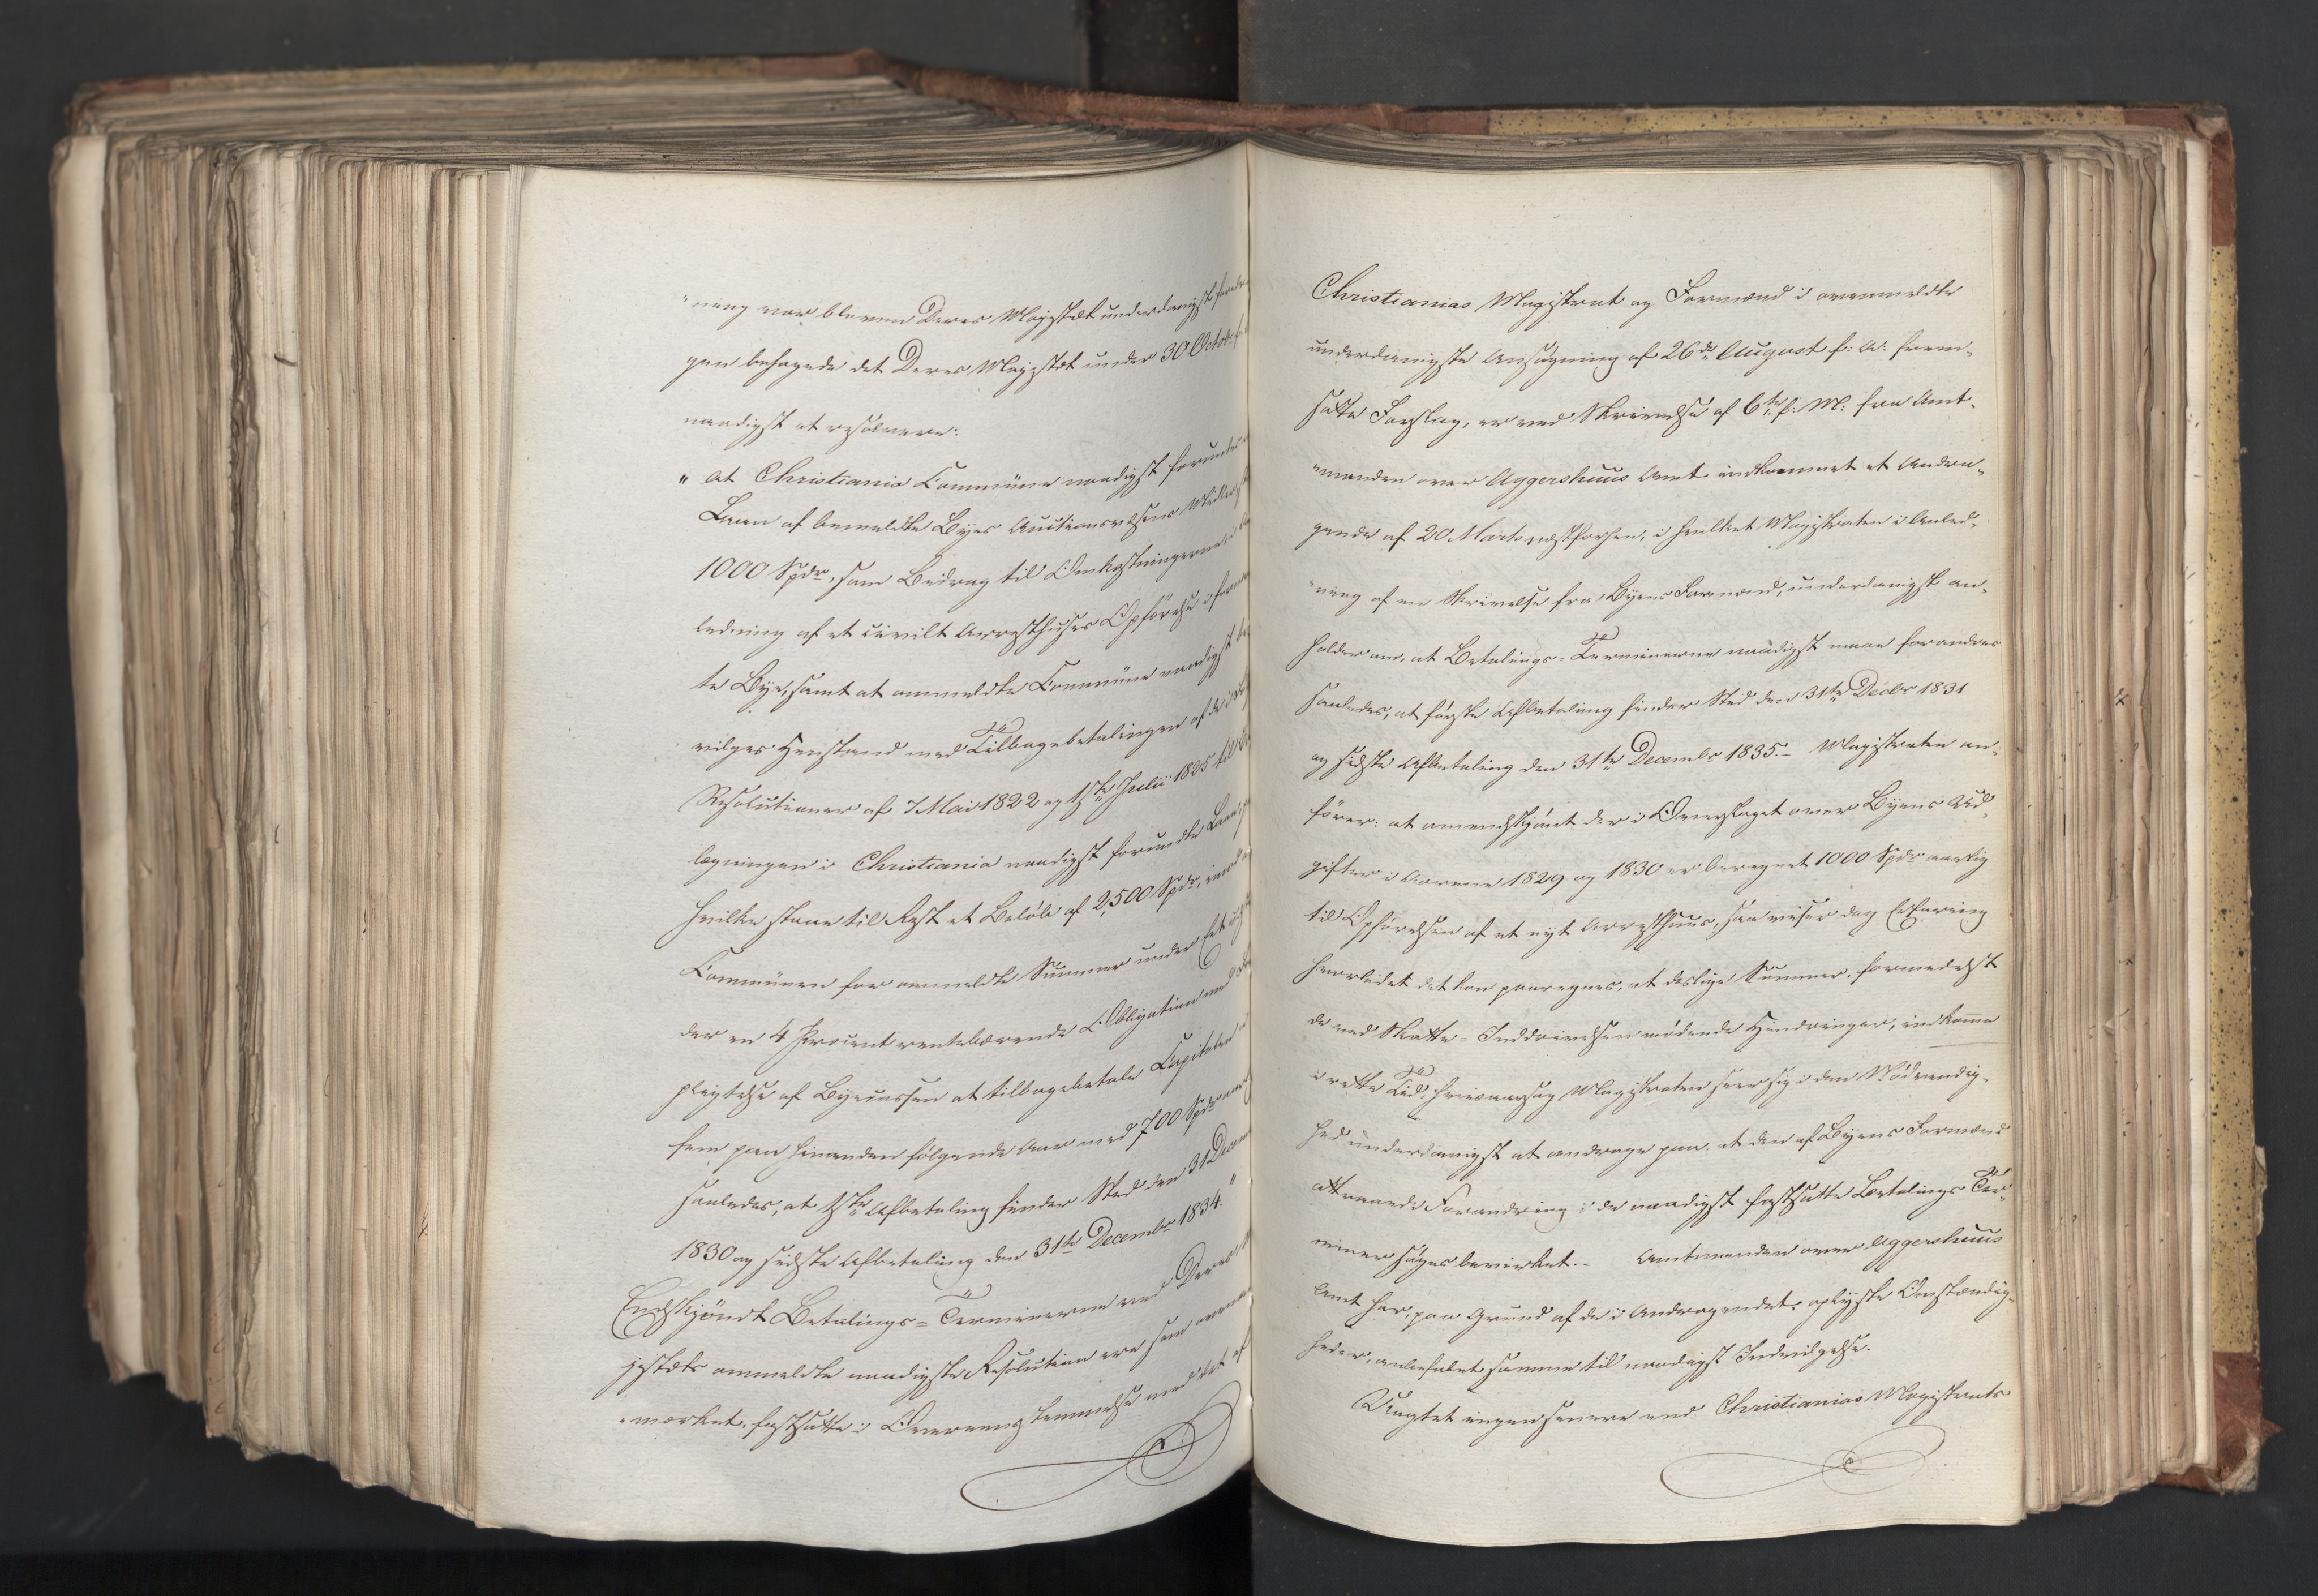 "ning var bleven Deres Majestæt underdanigst foredra
gen behagede det Deres Majestæt under 30 October
naadigst at resolvere:
" at Christiania Commune naadigst forundes
Laan af bemeldte Byes Auctionsvæsens Midler
1000 Spdr, som Bidrag til Omkostningerne i An
ledning af et civilt Arresthuses Opførelse i forn
te Bye, samt at ommeldte Commune naadigst be
vilges Henstand med Tilbagebetalingen af de ved
Resolutioner af 7 Mai 1822 og 1ste Julii 1825 til
lægningen i Christiania naadigst forundte Laan,
hvilke staae til Rest et Beløb af 2,500 Spdr, imod
Communen for ommeldte Summer under Eet ud
der en 4 Procent rentebærende Obligation med
pligtelse af Byecassen at tilbagebetale Capitalen
fem paa hinanden følgende Aar med 700 Spdr
saaledes, at 1ste Afbetaling finder Sted den 31 Decem
1830 og sidste Afbetaling den 31te Decembr 1834."
Endskjøndt Betalings-Terminerne ved Deres
jestæts ommeldte naadigste Resolution ere som oven
mærket, fastsatte i Overeensstemmelse med det af
Christianias Magistrat og Formænd i ovenmeldte
underdanigste Ansøgning af 26de August f: A: frem-
satte Forslag, er ved Skrivelse af 6te f: M: fra Amt-
"manden over Aggershuus Amt indkommet et Andra-
gende af 20 Marts næstforhen, i hvilket Magistraten i Anled-
"ning af en Skrivelse fra Byens Formænd, underdanigst an-
holder om, at Betalings-Terminerne naadigst maae forandres
saaledes, at første Afbetaling finder Sted den 31te Decbr 1831
og sidste Afbetaling den 31te Decembr 1835.- Magistraten an-
fører: at omendskjønt der i Overslaget over Byens Ud-
gifter i Aarene 1829 og 1830 er beregnet 1000 Spdr aarlig
til Opførelsen af et nyt Arresthuus, saa viser dog Erfaring
hvorledes det kan paaregnes, at deslige Summer, formedelst
de ved Skatte-Inddrivelsen mødende Hindringer, indkomme
i rette Tid, hvisaarsag Magistraten seer sig i den Nødvendig-
hed underdanigst at andrage paa, at den af Byens Formænd
attraaede Forandring i de naadigst fastsatte Betalings Ter-
miner søges bevirket.- Amtmanden over Aggershuus
Amt har, paa Grund af de i Andragendet oplyste Omstændig-
heder, anbefalet samme til naadigst Indvilgelse.
Uagtet ingen senere end Christianias Magistrats